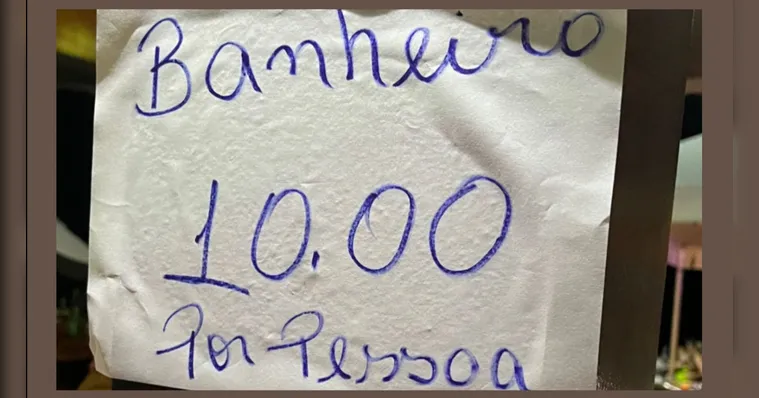 Banheiro
10.00
Por Pessoa